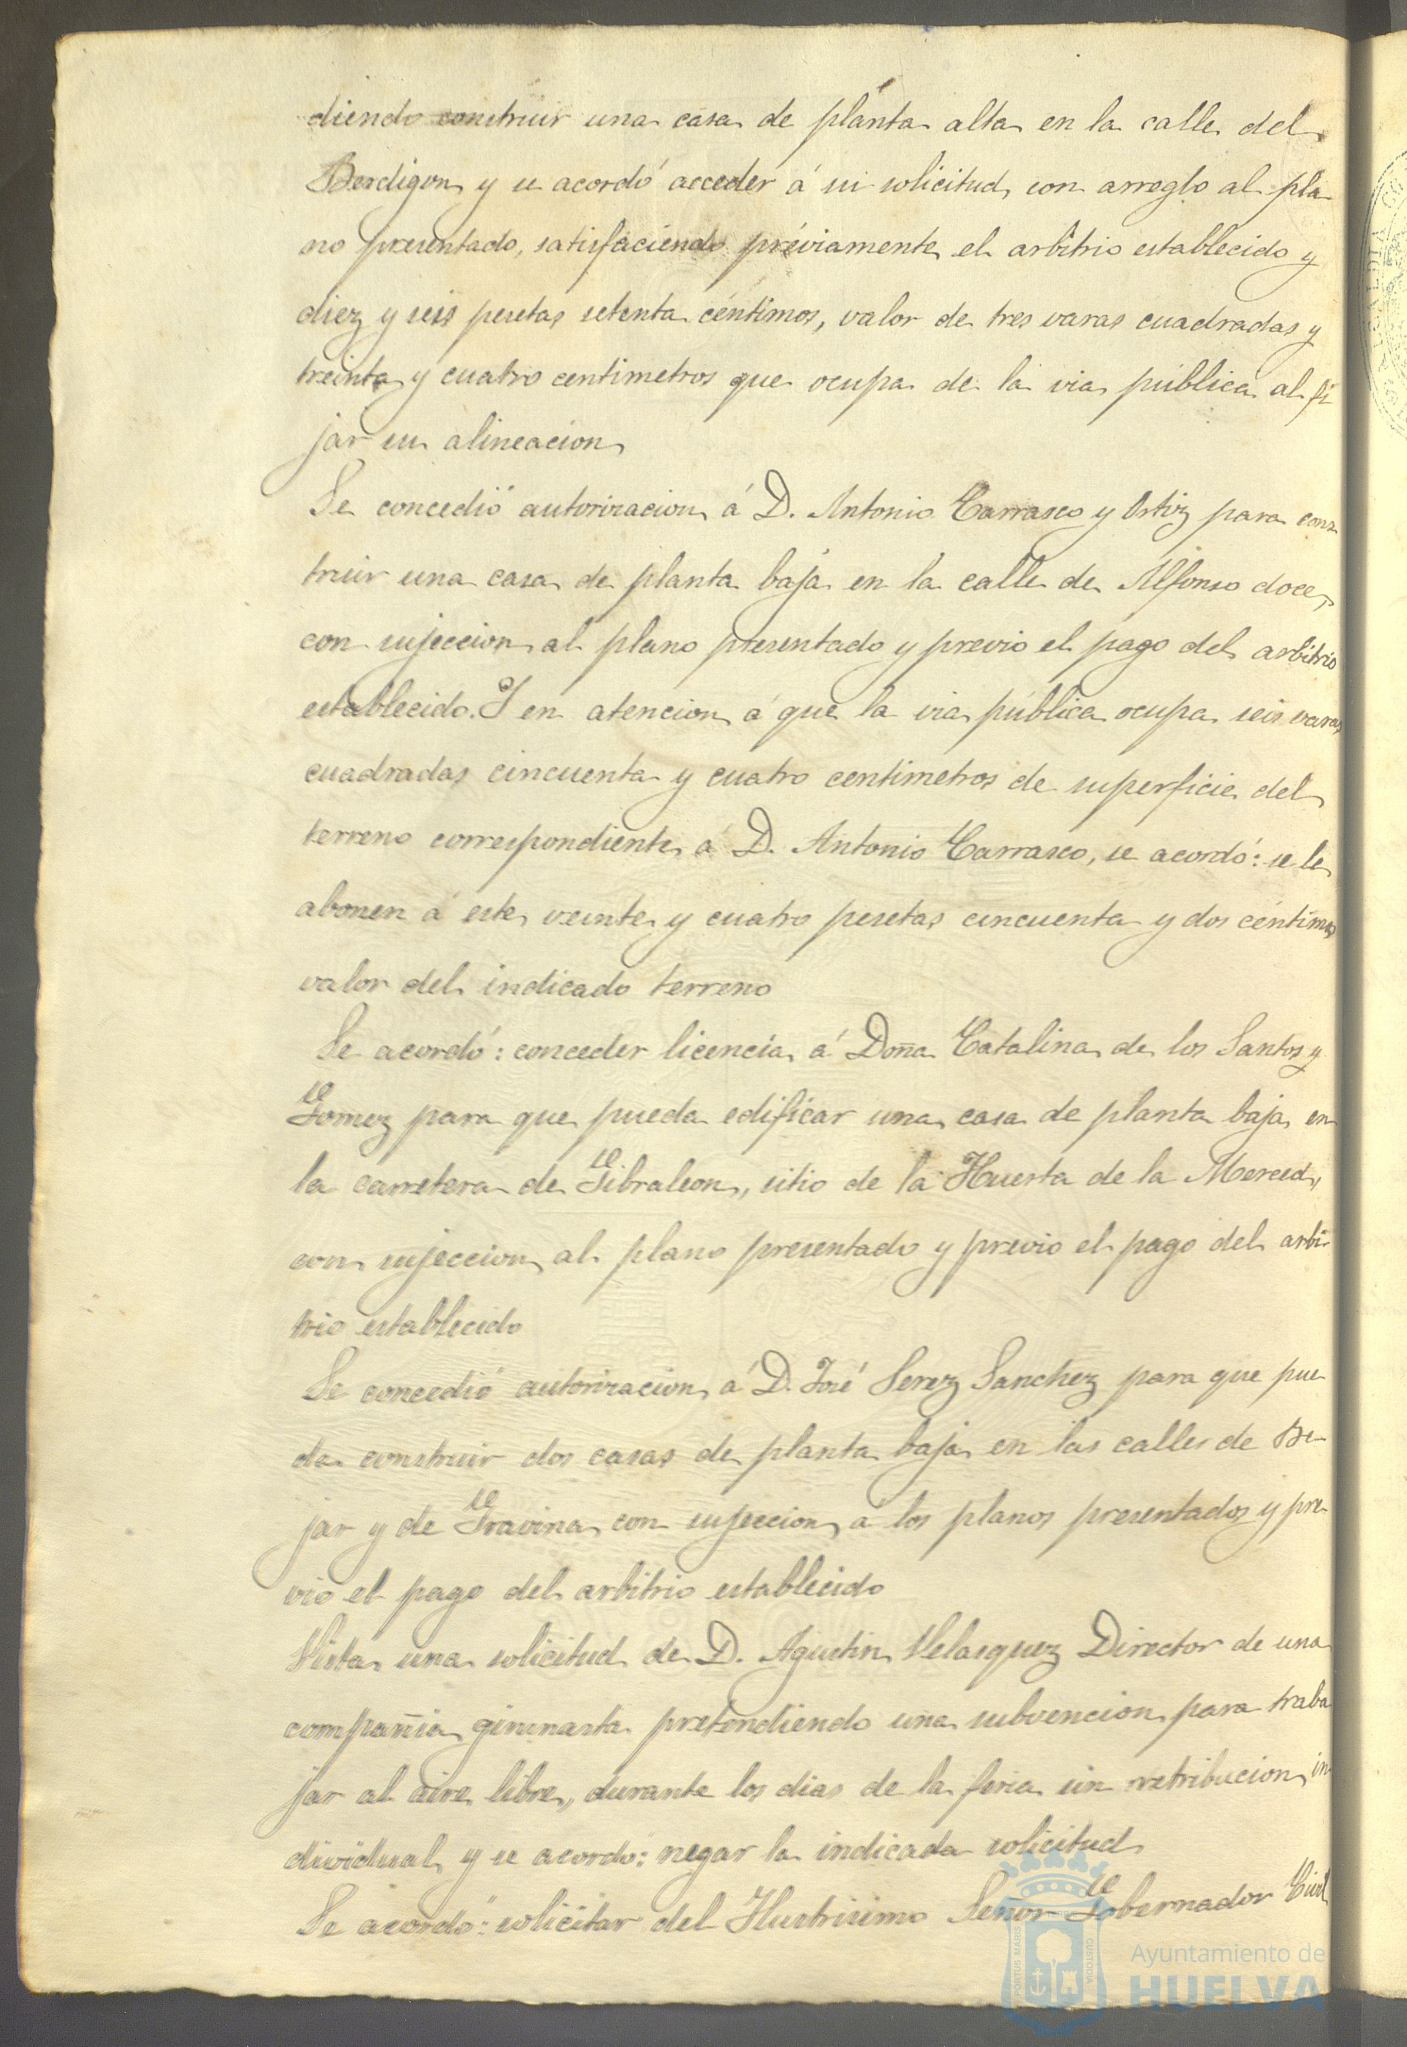 diendo construir una casa de planta alta en la calle del
Berdigon y se acordó acceder á su solicitud con arreglo al pla
no presentado, satisfaciendo préviamente el arbitrio establecido y
diez y seis pesetas setenta céntimos, valor de tres varas cuadradas y
treinta y cuatro centimetros que ocupa de la via pública al fi
jar su alineacion
Se concedió autorizacion á D. Antonio Carrasco y Ortiz para cons
truir una casa de planta baja en la calle de Alfonso doce,
con sujeccion al plano presentado y previo el pago del arbitrio
establecido. Y en atencion á que la via pública ocupa seis varas
cuadradas cincuenta y cuatro centimetros de superficie del
terreno correspondiente á D. Antonio Carrasco, se acordó: se le
abonen á este veinte y cuatro pesetas cincuenta y dos céntimos
valor del indicado terreno
Se acordó: conceder licencia á Doña Catalina de los Santos y
Gomez para que pueda edificar una casa de planta baja en
la carretera de Gibraleon, sitio de la Huerta de la Merced,
con sujeccion al plano presentado y previo el pago del arbi-
trio establecido
Se concedió autorizacion á D. José Perez Sanchez para que pue
da construir dos casas de planta baja en las calles de Be-
jar y de Gravina con sujeccion á los planos presentados y pre-
vio el pago del arbitrio establecido
Vista una solicitud de D. Agustin Velasquez Director de una
compañia gimnasta pretendiendo una subvencion para traba
jar al aire libre, durante los dias de la feria sin retribucion in
dividual, y se acordo: negar la indicada solicitud
Se acordó: solicitar del Ilustrisimo Señor Gobernador Civil
PORTUS MARIS
CUSTODIA
Ayuntamiento de
HUELVA